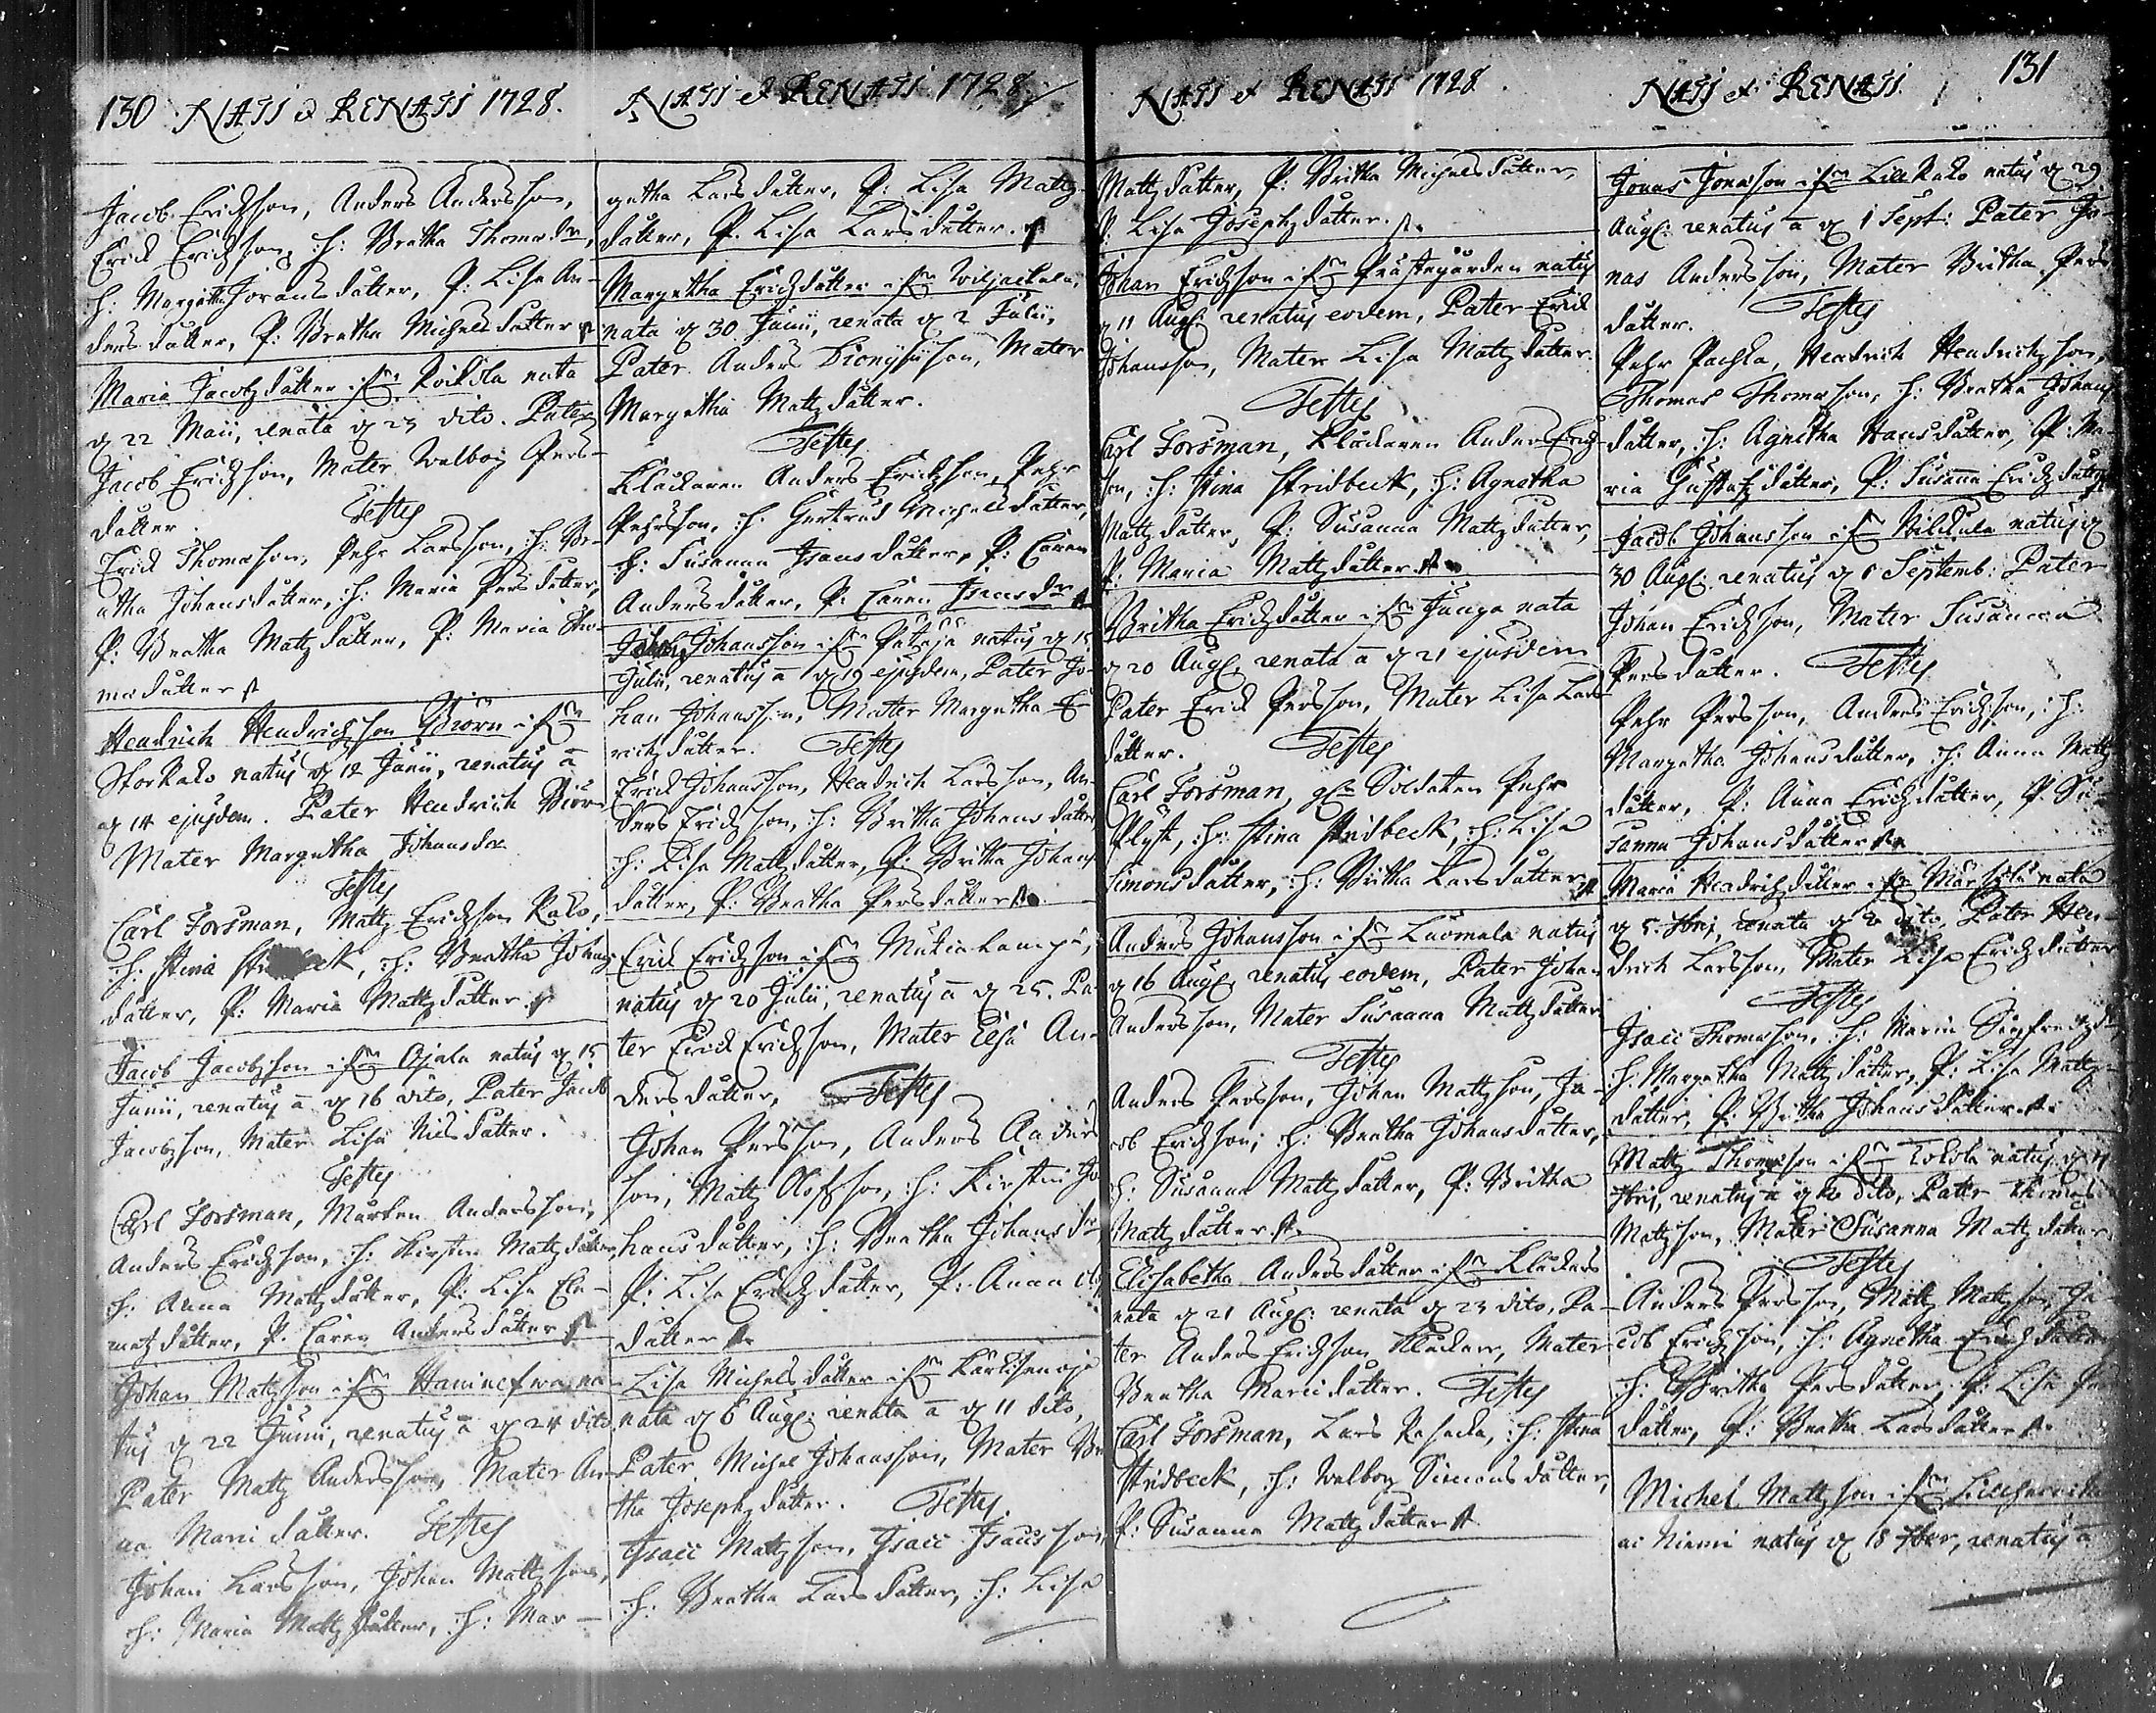 130 NATI & RENATI 1728.
Jacob Erichson, Anders Andersson,
Erich Erichson, H: Breatha Thomædr,
H: Margetha Joransdotter, P: Lisa An-
dersdotter, P: Breatha Michelsdotter
Maria Jacobzdotter ifrn Koickola nata
d 22 Maii, renata d 23 dito. Pater
Jacob Erichson, Mater Walborg Pers-
dotter. Testes
Erich Thomæson, Pehr Larsson, H: Br-
atha Johansdotter, H: Maria Persdotter,
P: Breatha Mattzdotter, P: Maria Tho-
mædotter
Hendrich Hendrichson Biörn ifrn
Storkako natus d 12 Junii, renatus
d 14 ejusdem. Pater Hendrich Biörn
Mater Margetha Johansdr
Testes
Carl Forsman, Mattz Erichson Kako,
H: Stina H: Breatha Johans
dotter, P: Maria Mattzdotter
Jacob Jacobzson ifrn Ajala natus d 15
Junii, renatus d 16 dito, Pater Jacob
Jacobzson, Mater Lisa Nilsdotter.
Testes
Carl Forsman, Marten Andersson,
Anders Erichson, H: Kirstin Mattzdotter
H: Anna Mattzdotter, P: Lisa Cle-
metzdotter, P. Caren Andersdotter
Johan Mattzson ifrn na-
tus d 22 Junii, renatus d 24 dito
Pater Mattz Andersson, Mater An-
na Marcidotter. Testes
Johan Larsson, Johan Mattzson,
H: Maria Mattzdotter, H: Mar-
NATI & RENATI 1728
getha Larsdotter, P: Lisa Mattz-
dotter, P. Lisa Larsdotter.
Margetha Erichdotter ifrn Wiljackala,
nata d 30 Junii, renata d 2 Julii,
Pater Anders Dionysiison, Mater
Margetha Mattzdotter.
Testes
Klockaren Anders Erichson, Pehr
Pehrsson, H. Gertrud Michelsdotter,
H: Susanna Isacsdotter, P: Caren
Andersdotter, P: Caren Isacsdr
Johan Johansson ifrn natus d 15
Julii, renatus d 19 ejusdem, Pater Jo-
han Johansson, Mater Margetha E-
richzdotter. Testes
Erich Johansson, Hendrich Larsson, An-
ders Erichson, H: Britha Johansdotter
H: Lisa Mattzdotter, P: Britha Johans
dotter, P: Breatha Persdotter
Erich Erichson ifrn
natus d 20 Julii, renatus d 25. Pa-
ter Erich Erichson, Mater Elsa An-
dersdotter, Testes
Johan Persson, Anders Anders
son, Mattz Olofson, H: Kirstin Jo
hansdotter, H: Breatha Johansdr
P: Lisa Erichzdotter, P: Anna
dotter
Lisa Michelsdotter ifrn
nata d 6 Aug: renata d 11 dito,
Pater Michel Johansson, Mater Br
tha Josephzdotter. Testes
Isacc Mattzson, Isacc Isacsson,
H: Breatha Larsdotter, H: Lisa
NATI & RENATI 1728
Mattzdotter, P: Britha Michelsdotter,
P: Lisa Josephzdotter.
Johan Erichson ifrn Prästegården natus
d 11 Aug: renatus eodem, Pater Erich
Johansson, Mater Lisa Mattzdotter
Testes
Carl Forsman, Klockaren Anders Erich
son, H: Stina Stridbeck, H: Agnetha
Mattzdotter, P: Susanna Mattzdotter,
P: Maria Mattzdotter
Britha Erichzdotter ifrn nata
d 20 Aug: renata d 21 ejusdem
Pater Erich Persson, Mater Lisa Lars
dotter. Testes
Carl Forsman, Soldaten Pehr
H: Stina Stridbeck, H: Lisa
Simonsdotter, H: Britha Larsdotter
Anders Johansson ifrn Luomala natus
d 16 Aug: renatus eodem, Pater Johan
Andersson, Mater Susanna Mattzdotter
Testes
Anders Persson, Johan Mattzson, Ja-
cob Erichson, H: Breatha Johansdotter,
H: Susanna Mattzdotter, P: Britha
Mattzdotter
Elisabetha Andersdotter ifrn Klockars
nata d 21 Aug: renata d 23 dito, Pa-
ter Anders Erichson Klockare, Mater
Breatha Marcidotter. Testes
Carl Forsman, Lars H: Stina
Stridbeck, H: Walborg Simonsdotter,
P: Susanna Mattzdotter
NATI & RENATI 131
Jonas Jonæson ifrn Lillkako natus d 29
Aug: renatus d 1 Sept: Pater Jo-
nas Andersson, Mater Britha Pers
dotter. Testes
Pehr Pachka, Hendrich Hendrichson,
Thomas Thomæson, H: Breatha Johans
dotter, H: Agnetha Hansdotter, P: Ma
ria Gustafzdotter, P: Susanna Erichzdotter
Jacob Johansson ifrn natus d
30 Aug: renatus d 1 Septemb: Pater
Johan Erichson, Mater Susanna
Persdotter. Testes
Pehr Persson, Anders Erichson, H:
Margetha Johansdotter, H: Anna Mattz
dotter, P: Anna Erichzdotter, P. Su-
sanna Johansdotter
Maria Hendrichzdotter ifrn nata
d 5 7bris, renata d 8 dito, Pater Hen-
drich Larsson, Mater Lisa Erichzdotter
Testes
Isacc Thomæson, H: Maria Sigfredzdr
H: Margetha Mattzdotter, P: Lisa Mattz-
dotter, P: Britha Johansdotter
Mattz Thomæson ifrn natus d
7bris, renatus dito, Pater Thomas
Mattzson, Mater Susanna Mattzdotter
Testes
Anders Persson, Mattz Mattzson, Ja-
cob Erichson, H: Agnetha Erichzdotter
H: Britha Persdotter, P: Lisa
dotter, P: Breatha Larsdotter
Michel Mattzson ifrn
Niemi natus d 18 7ber, renatus